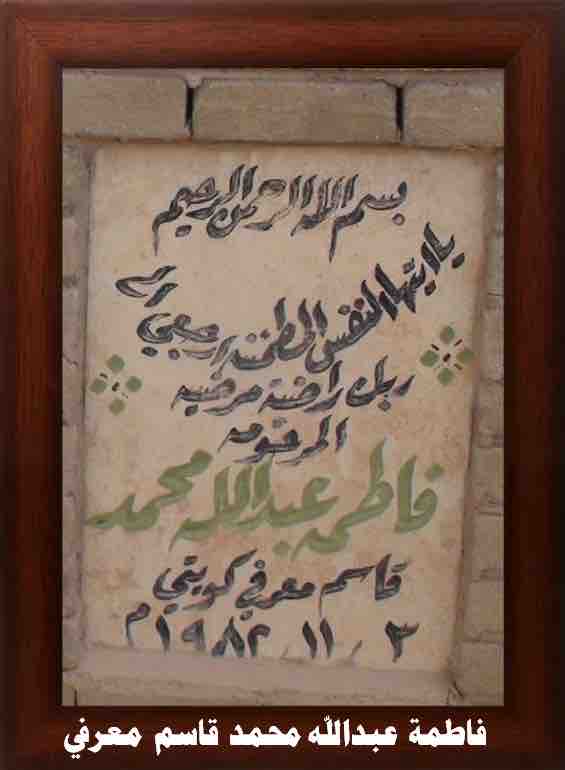 بسم الله الرحمن الرحيم
يا ايتها النفس المطمئنة ارجعي الى
ربك راضية مرضيه
المرحومه
فاطمه عبدالله محمد
قاسم معرفي كويتي
٣ / ١١ / ١٩٨٢م
فاطمة عبدالله محمد قاسم معرفي